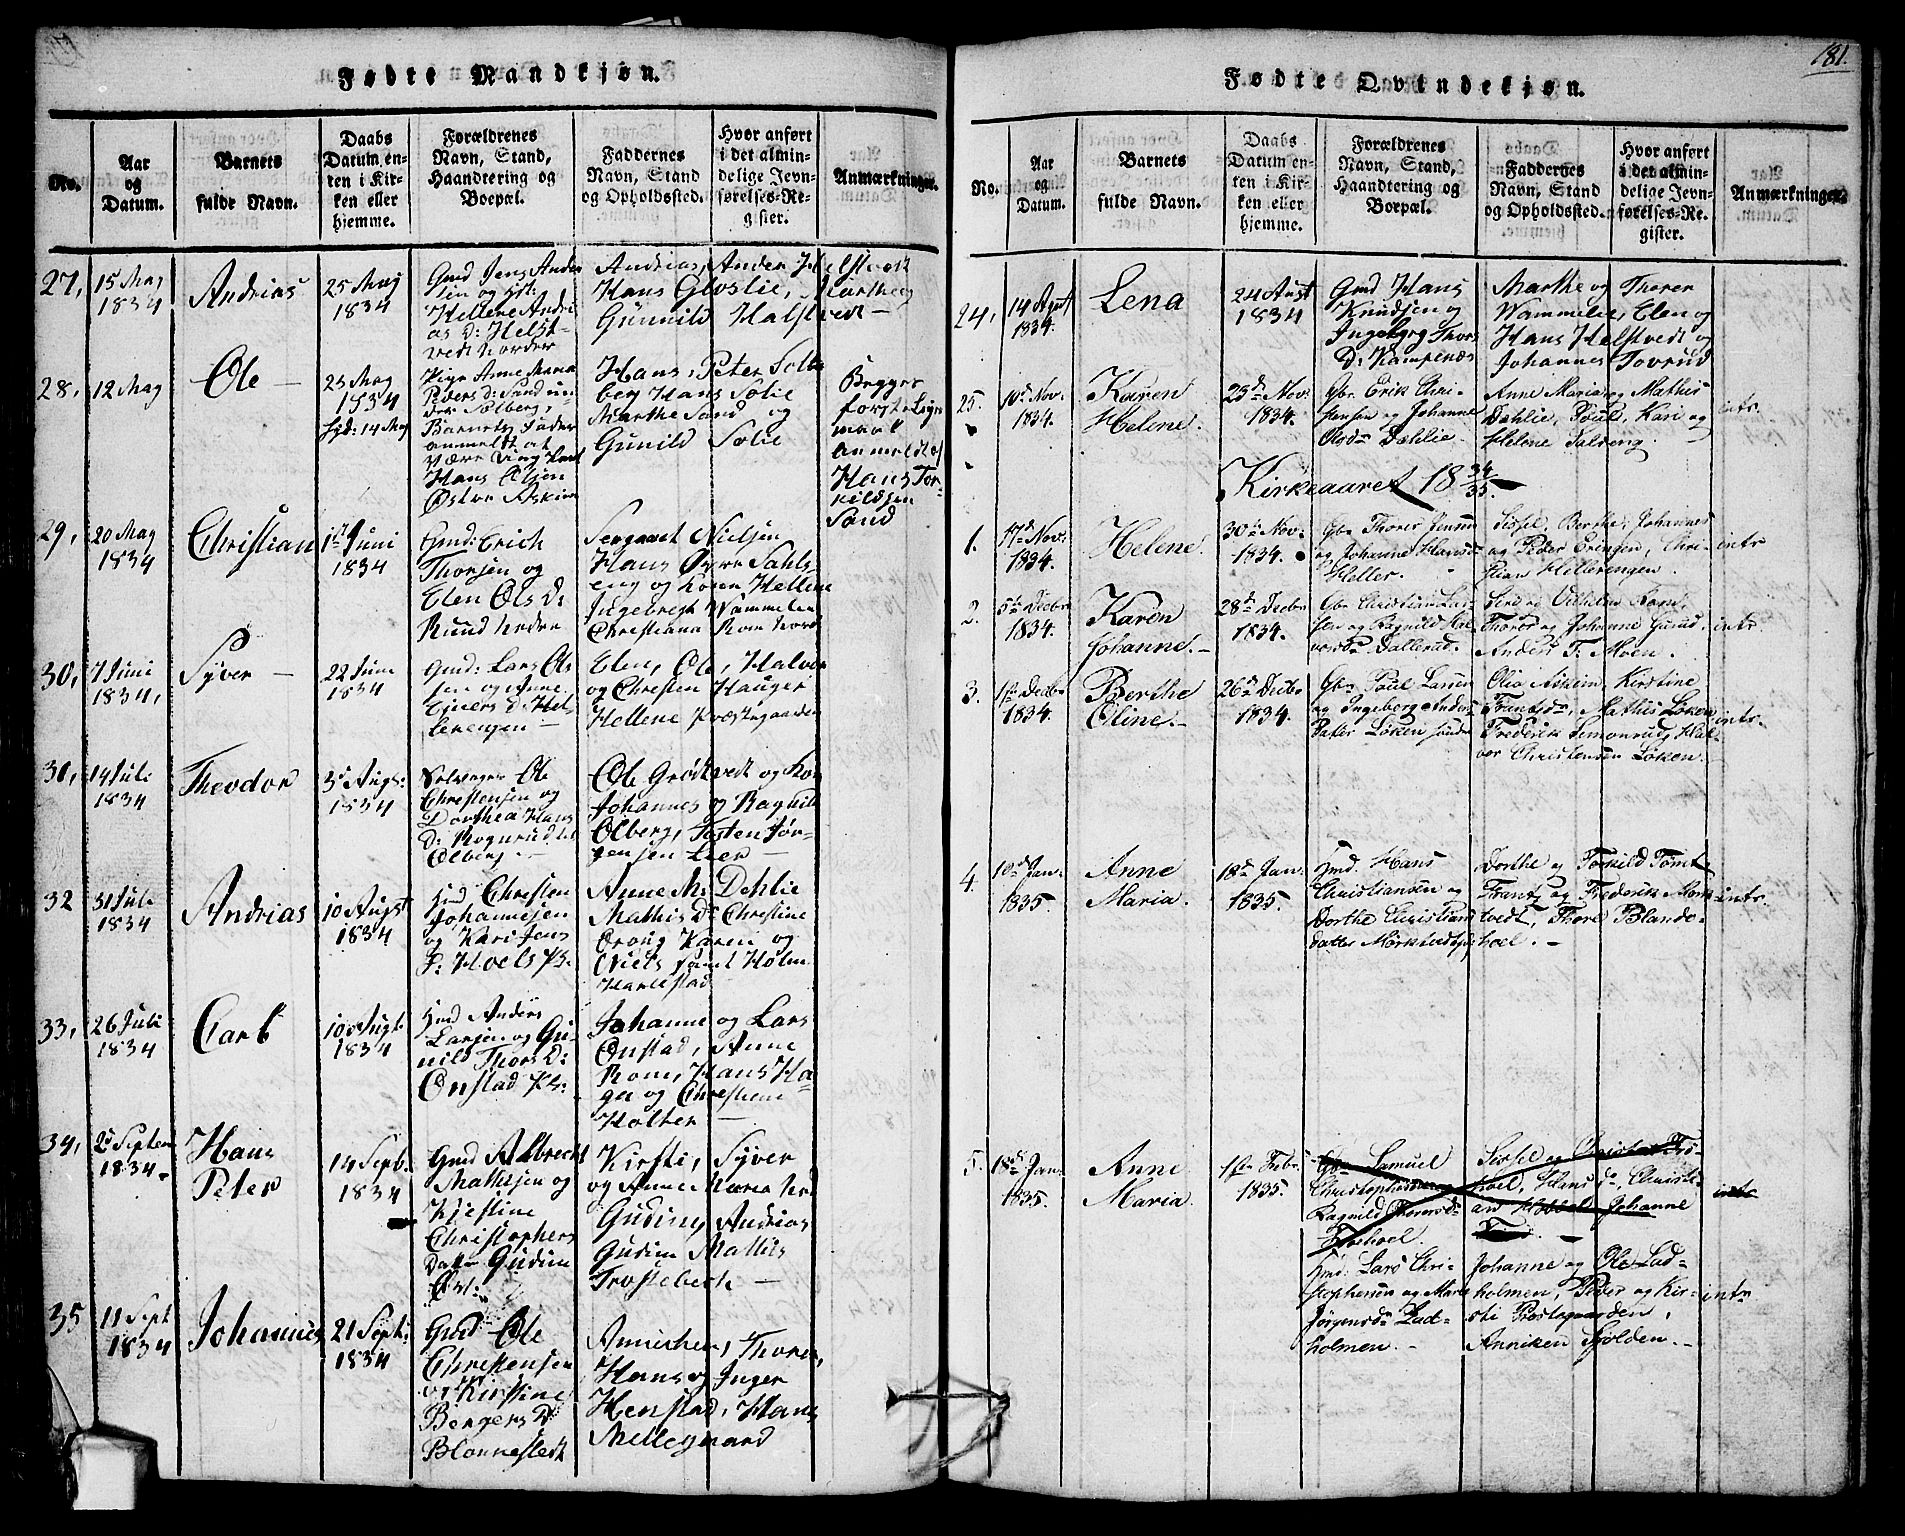 181.
Fødte Mandkjøn.
No.
Aar og Datum.
Barnets fulde Navn.
Daabs Datum enten i Kirken eller hjemme.
Forældrenes Navn, Stand, Haandtering og Boepæl.
Faddernes Navn, Stand og Opholdssted.
Hvor anført i det almindelige Jevnførelses-Register.
Anmærkninger.
27,
15 Maj
1834
Andrias
25 Maj
1834
Gmd Jens Ander
sen og
Hellene Andri
as D: Helst
vedt
Andrias, Ander Helstvedt
Hans Gloslie, Marthe og
Gunnild Halstvedt —
28,
12 Maj
Ole —
25 Maj
1834
14 Maj
Pige Anne Maria
Peders D: Sand un
der Sølberg,
Barnets Fader
anmeldt at
være Ung Karl
Hans Olsen
Østre Askim
Hans, Peter Solb
berg Hans Solie
Marthe Sand og
Gunild Solie
Begges
første
maal
anmeldt af
Hans Tor
kildsen
Sand
29,
20 Maj
1834
Christian
1ste Juni
1834
Gmd: Erich
Thorsen og
Elen Ols D:
Rund nedre
Sergeant Nielsen
Hans Øvre Sahls
eng og Karen Hellene
Ingebregt Wammelie
Christiana Rom nord
30,
7 Juni
1834,
Syver —
22 Juni
1834
Gmd: Lars Ols
sen og Anne
Ejvers D: Hel
lerengen —
Elen, Ole, Halvor
og Christen Hauger
Hellene Præstegaarden
31,
14 Juli
1834
Theodor
3d Augs:
1834
Selveger Ole
Christensen og
Dorthea Hans
D: Rognerud
Ølberg —
Ole Grødtvedt og Kone
Johannes og Ragnild
Ølberg, Tosten Jør-
gensen Lier —
32
31 Juli
1834
Andrias
10 Augst
1834
Hmd Christen
Johannesen
og Kari Jens
D: Hoels Pl:
Anne M: Dehlie
Mathis D: Christine
Oraug Karen og
Niels samt Holm
Harlestad
33,
26 Juli
1834
Carl
10de Augt:
1834
Hmd Anders
Larsen og Gu-
nild Thors D:
Onstad Pl:
Johanne og Lars
Onstad, Anne
Rom, Hans Ha-
ger og Christian
Holter —
34,
2d Septem
1834.
Hans
Peter
14 Septb.
1834
Gmd Albrecht
Mathisen og
Kjestine
Christophers
Datter Gudim
Øst:
Kirsti, Syver
og Anne Karin
Gudim, Andrias
Gudim Mathis
Trostebech —
35
11 Sept
1834
Johannes
21 Septb
1834
Gmd Ole
Christensen
og Kirstine
Bergers D:
Blonnestedt
Annichen, Thoren,
Hans og Inger
Henstad, Hans
Mellegaard
Fødte Qvindekjøn.
No.
Aar og Datum.
Barnets fulde Navn.
Daabs Datum enten i Kirken eller hjemme.
Forældrenes Navn, Stand, Haandtering og Borpæl.
Faddernes Navn, Stand og Opholdssted.
Hvor anført i det almindelige Jevnførelses-Register.
Anmærkninger.
24,
14 Augst
1834.
Lena
24 Aust
1834
Gmd Hans
Knudsen og
Ingeborg Thors
D: Kampenæs
Marthe og Thorer
Wammelie, Elen og
Hans Helstvedt og
Johannes Tovrud
25.
10de Nov.
1834.
Karen
Helene.
23de Nov.
1834.
Gbr. Erik Chri-
stensen og Johanne
Olsdr. Dæhlie.
Anne Maria og Mathis
Dæhlie, Poul, Kari og
Helene Salberg.
intr.
Kirkeaaret 18 34/35. —
1.
17de Nov.
1834.
Helene.
30te Nov.
1834.
Gbr. Thorer Jensen
og Johanne Hansd:
Heller.
Sissel, Berthe, Johannes
og Peder Eringen, Chri-
stian Hellerengen.
intr
2.
5te Decbr
1834.
Karen
Johanne. —
28de Decbr
1834.
Gbr Christian Lar-
sen og Ragnild Hal
vorsdr Dallerud.
Siri og Vilhelm Rom,
Thorer og Johanne Gurud,
Anders T. Moen.
intr
3.
1ste Decbr
1834.
Berthe
Oline. —
26de Decbr
1834.
Gbr Poul Larsen
og Ingeborg Anders
Datter Løken søndre
Olia Askim, Kirstine
Frantsdr, Mathis Løken
Frederik Simonrud, Hal-
vor Christensen Løken.
intr.
4.
10de Jan.
1835.
Anne
Maria.
18de Jan.
1835.
Hmd. Hans
Christiansen og
Dorthe Christians
datter Mørktvedtpl
Dorthe og Torkild Tomt
Frantz og Frederik Mørk
tvedt, Thore Blande-
hoel. —
intr.
5.
18de Jan.
1835.
Anne
Maria.
1ste Febr.
1835.
Gbr Samuel
Christophersen og
Ragnild Thoresd:
Froshoel.
Sissel og Christen Frø-
hoel, Hans do, Christi-
an Hobbel, Johanne
intr
Hmd. Lars Chri-
stophersen og Marie
Jørgensdr Lad-
holmen. —
Johanne og Ole Lad-
holmen, Peder og Kir-
sti Præstegaarden,
Anniken Skolden. —
intr